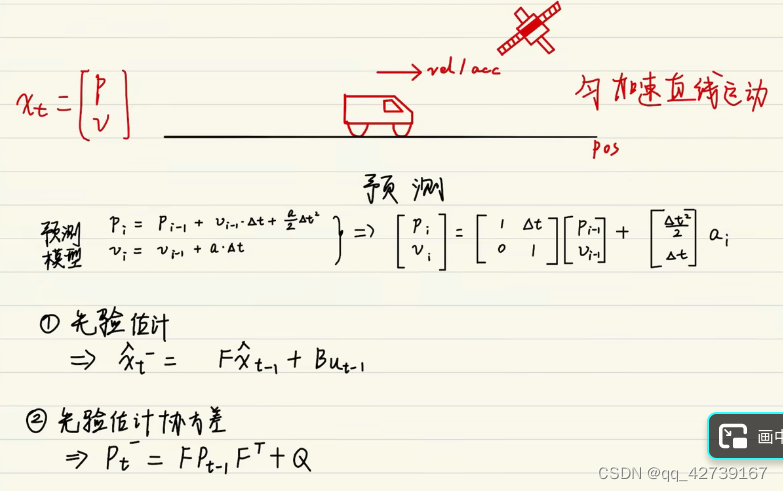 x_t = [p v]
vel/acc
匀加速直线运动
pos
预测
预测模型
p_i = p_{i-1} + v_{i-1}·Δt + a/2 Δt²
v_i = v_{i-1} + a·Δt
} => [p_i v_i] = [1 Δt 0 1] [p_{i-1} v_{i-1}] + [Δt²/2 Δt] a_i
① 先验估计
=> x̂_t⁻ = Fx̂_{t-1} + Bu_{t-1}
② 先验估计协方差
=> P_t⁻ = FP_{t-1}F^T + Q
画中
CSDN @qq_42739167